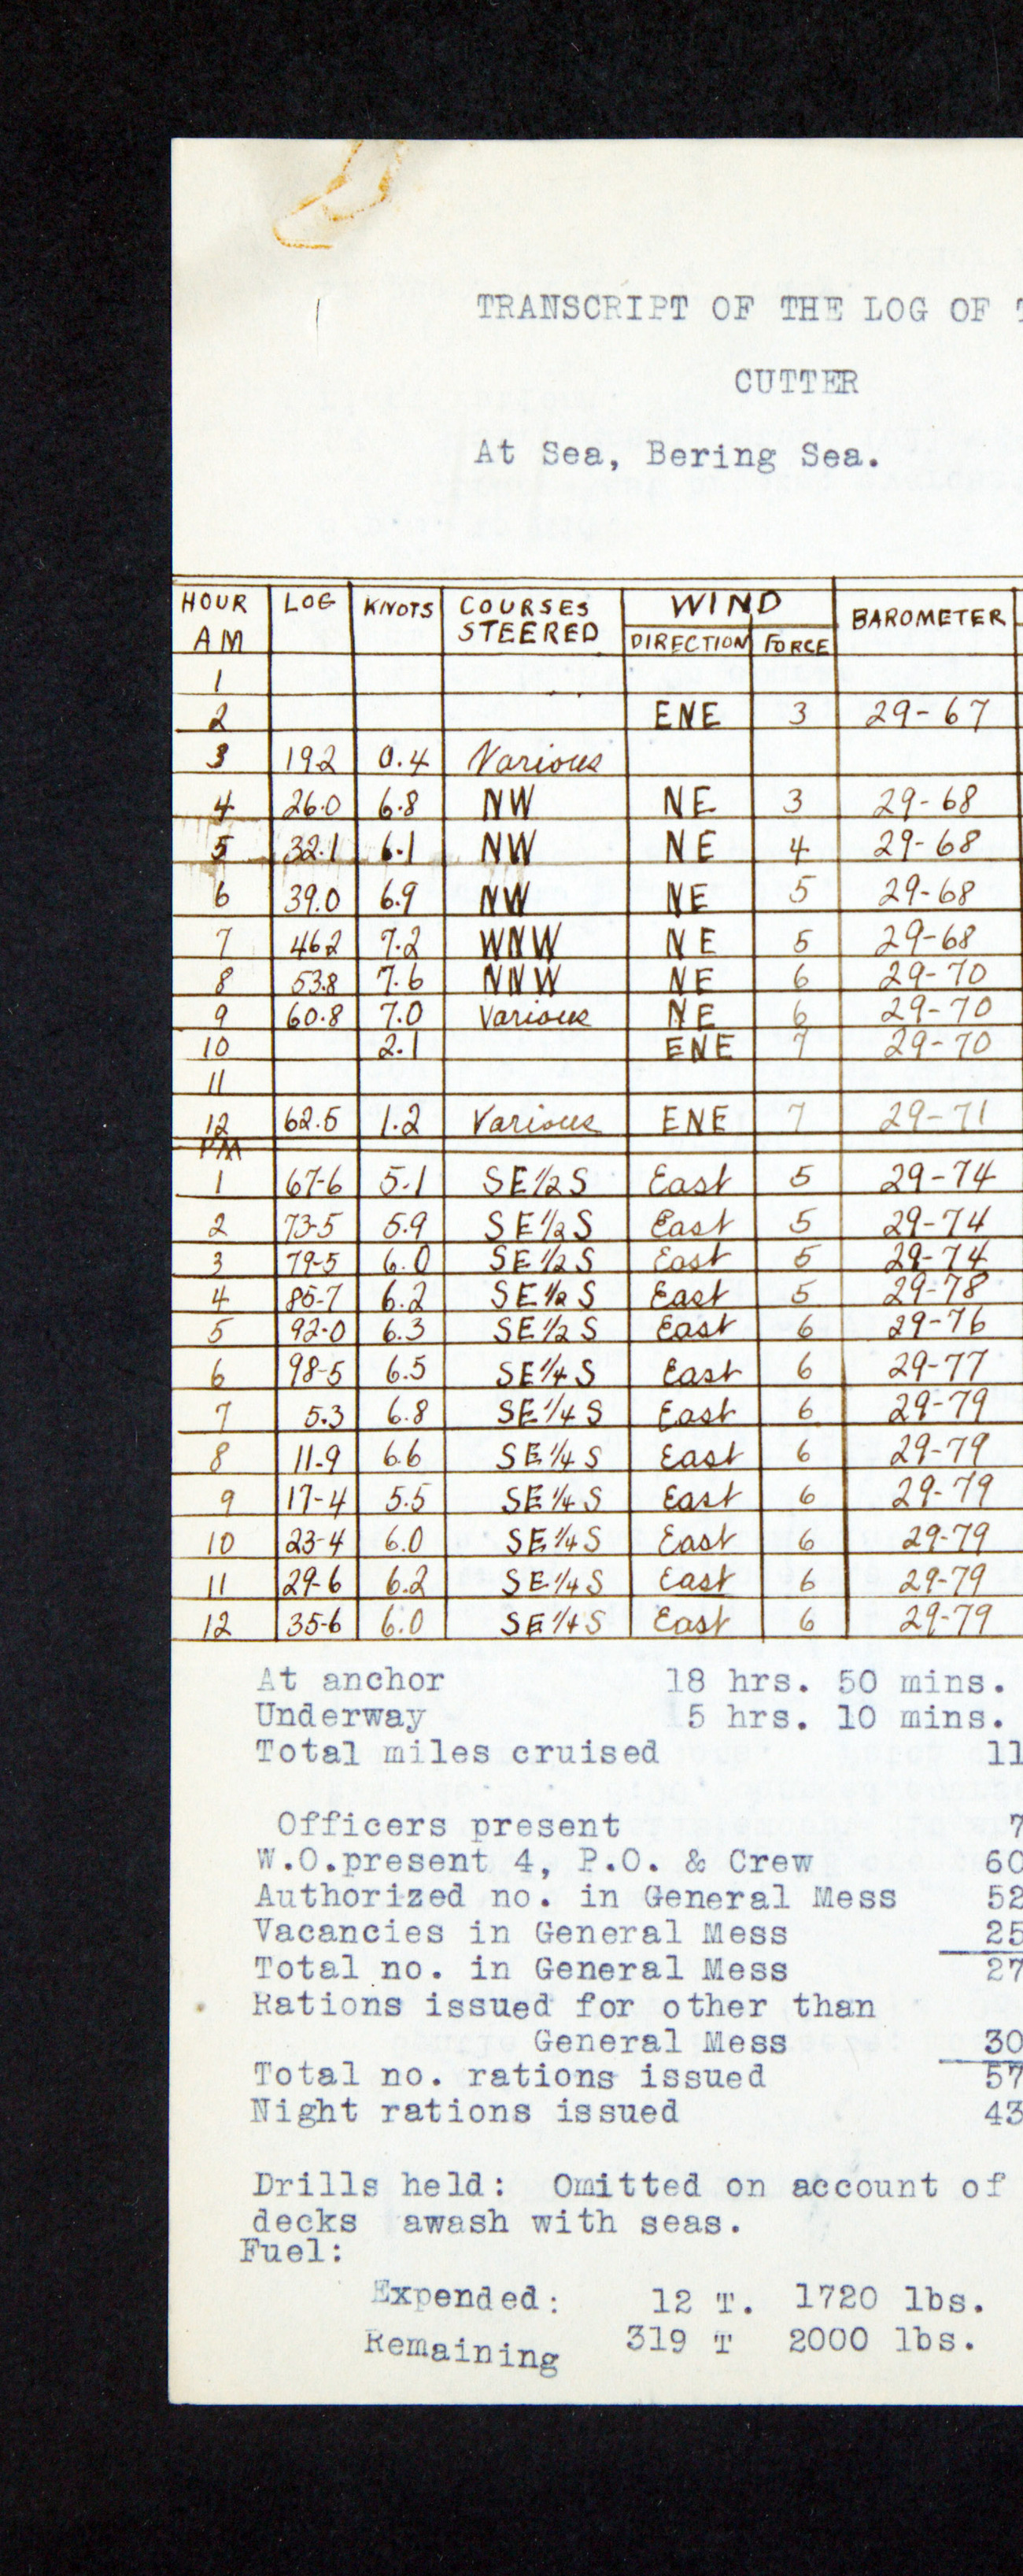 TRANSCRIPT OF THE LOG OF
CUTTER
At Sea, Bering Sea.
HOUR LOG KNOTS COURSES STEERED WIND BAROMETER
AM DIRECTION FORCE
1
2 ENE 3 29-67
3 192 0.4 Various
4 26.0 6.8 NW NE 3 29-68
5 32.1 6.1 NW NE 4 29-68
6 39.0 6.9 NW NE 5 29-68
7 462 7.2 WNW NE 5 29-68
8 53.8 7.6 NNW NE 6 29-70
9 60.8 7.0 Various NE 6 29-70
10 2.1 ENE 7 29-70
11
12 62.5 1.2 Various ENE 7 29-71
PM
1 67-6 5.1 SE1/2S East 5 29-74
2 73-5 5.9 SE1/2S East 5 29-74
3 79-5 6.0 SE1/2S East 5 29-74
4 85-7 6.2 SE1/2S East 5 29-78
5 92-0 6.3 SE1/2S East 6 29-76
6 98-5 6.5 SE1/4S East 6 29-77
7 5.3 6.8 SE1/4S East 6 29-79
8 11-9 6.6 SE1/4S East 6 29-79
9 17-4 5.5 SE1/4S East 6 29-79
10 23-4 6.0 SE1/4S East 6 29-79
11 29-6 6.2 SE1/4S East 6 29-79
12 35-6 6.0 SE1/4S East 6 29-79
At anchor 18 hrs. 50 mins.
Underway 5 hrs. 10 mins.
Total miles cruised 11
Officers present 7
W.O.present 4, P.O. & Crew 60
Authorized no. in General Mess 52
Vacancies in General Mess 25
Total no. in General Mess 27
Rations issued for other than
General Mess 30
Total no. rations issued 57
Night rations issued 43
Drills held: Omitted on account of
decks awash with seas.
Fuel:
Expended: 12 T. 1720 lbs.
Remaining 319 T 2000 lbs.